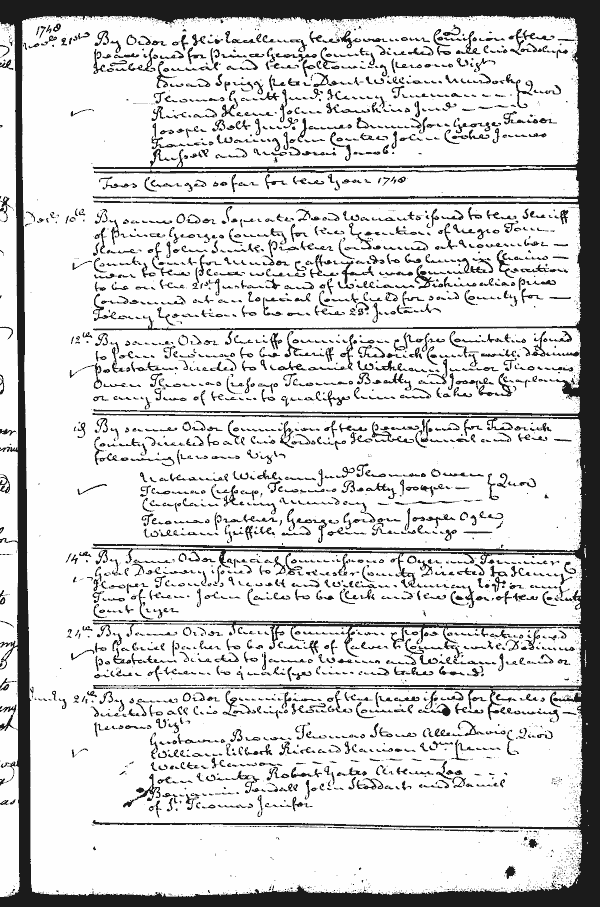 1748
Novr. 21st By Order of His Excellency the Governour Comission of the
peace issued for Prince Georges County directed to all his Lordships
Honble Council and the following persons Vizt
Edward Sprigg Peter Dent William Murdock
Thomas Gantt Junr. Henry Trueman Quor
Richard Keene John Hawkins Junr
Joseph Belt Junr. James Edmundson George Fraser
Francis Waring John Contee John Cooke James
Russell and Mordecai Jacob
Fees Charged so far for the Year 1748
Decr. 10th By same Order Seperate Dead Warrants issued to the Sheriff
of Prince Georges County for the Execution of Negro Tom
Slave of John Smith Prather Condemned at November
County Court for Murder & afterwards to be hung in Chains
near to the place where the fact was Committed Execution
to be on the 21st Instant and of William Dickins alias Price
Condemned at an Especial Court held for said County for
Felony Execution to be on the 23d Instant
12th By same Order Sheriffs Commission & posse Comitatus issued
to John Thomas to be Sheriff of Frederick County with dedimus
potestatem directed to Nathaniel Wickham Junior Thomas
Owen Thomas Cressap Thomas Beatty and Joseph Chapline
or any Two of them to qualifye him and take bond
By same Order Commission of the peace issued for Frederick
County directed to all his Lordships Honble Council and the
following persons Vizt
Nathaniel Wickham Junr Thomas Owen
Thomas Cressap, Thomas Beatty Joseph Quor
Chaplain Henry Munday
Thomas Prather, George Gordon Joseph Ogle
William Griffith and John Rawlings
14th By Same Order Especial Commissions of Oyer and Terminer &
Goal Delivery issued to Dorchester County Directed to Henry
Hooper Thomas Nevett and William or any
Two of them John Caile to be Clerk and the of the County
Court Cryer
24th By Same Order Sheriffs Commission & posse Comitatus issued
to Gabriel Parker to be Sheriff of Calvert County with Dedimus
potestatem directed to James Weems and William Ireland or
either of them to qualifye him and take bond
24th By same Order Commission of the peace issued for Charles County
directed to all his Lordships Honble Council and the following
persons Vizt
Gustavus Brown Thomas Stone Allen Davis Quor
William Eilbeck Richard Harrison Wm Penn
Walter Hanson
John Winter Robert Yates Arthur Lee
Benjamin Fendall John Stoddart and Daniel
of St. Thomas Jenifer